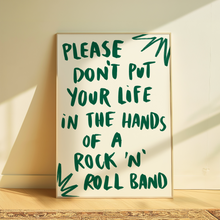 PLEASE
DON'T PUT
YOUR LIFE
iN THE HANDS
OF A
ROCK 'N'
ROLL BAND